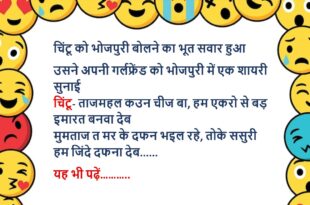 चिंटू को भोजपुरी बोलने का भूत सवार हुआ
उसने अपनी गर्लफ्रेंड को भोजपुरी में एक शायरी
सुनाई
चिंटू- ताजमहल कउन चीज बा, हम एकरो से बड़
इमारत बनवा देब
मुमताज त मर के दफन भइल रहे, तोके ससुरी
हम जिंदे दफना देब......
यह भी पढ़ें...........